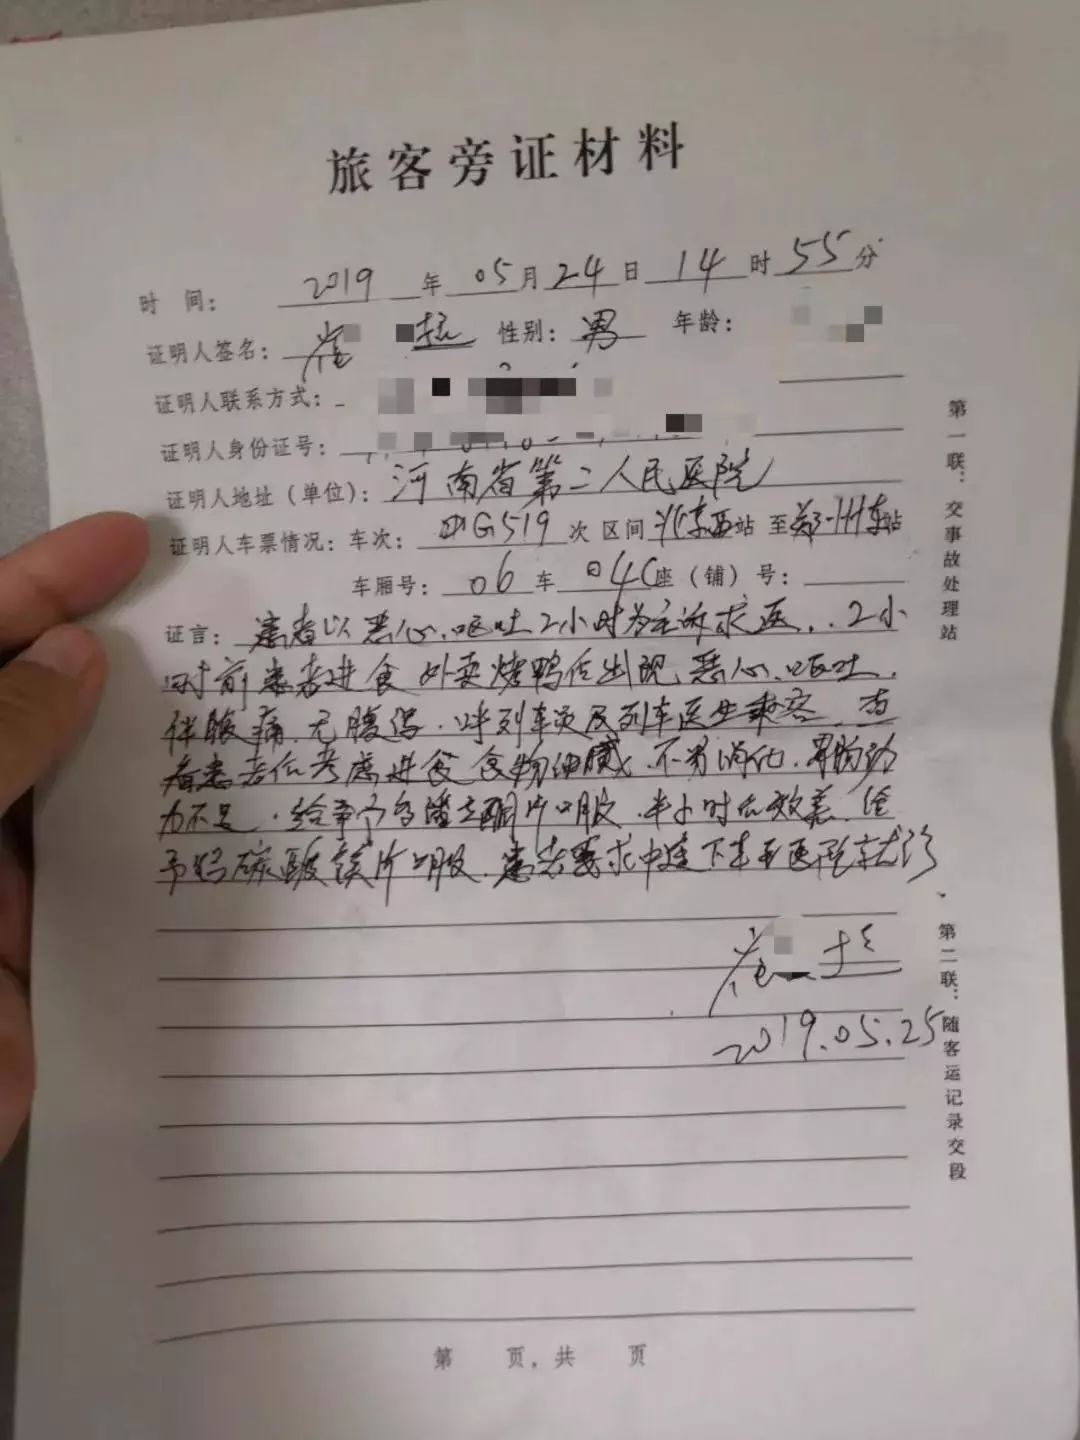 旅客旁证材料
时 间: 2019 年 05 月 24 日 14 时 55 分
证明人签名: 崔 性别: 男 年龄:
证明人联系方式:
证明人身份证号:
证明人地址(单位): 河南省第二人民医院
证明人车票情况: 车次: G519 次 区间 北京西站 至 郑州东站
车厢号: 06 车 04C 座(铺)号:
证言: 患者以恶心、呕吐2小时为主诉求医. 2小
时前患者进食外卖烤鸭后出现恶心、呕吐,
伴腹痛,无腹泻. 呼列车员及列车医生乘客. 查
看患者后考虑进食食物油腻,不易消化,胃肠动
力不足. 给予多潘立酮片口服,半小时后效差,给
予铝碳酸镁片口服. 患者要求中途下车至医院就诊.
崔
2019.05.25
第 页,共 页
第一联:交事故处理站
第二联:随客运记录交段